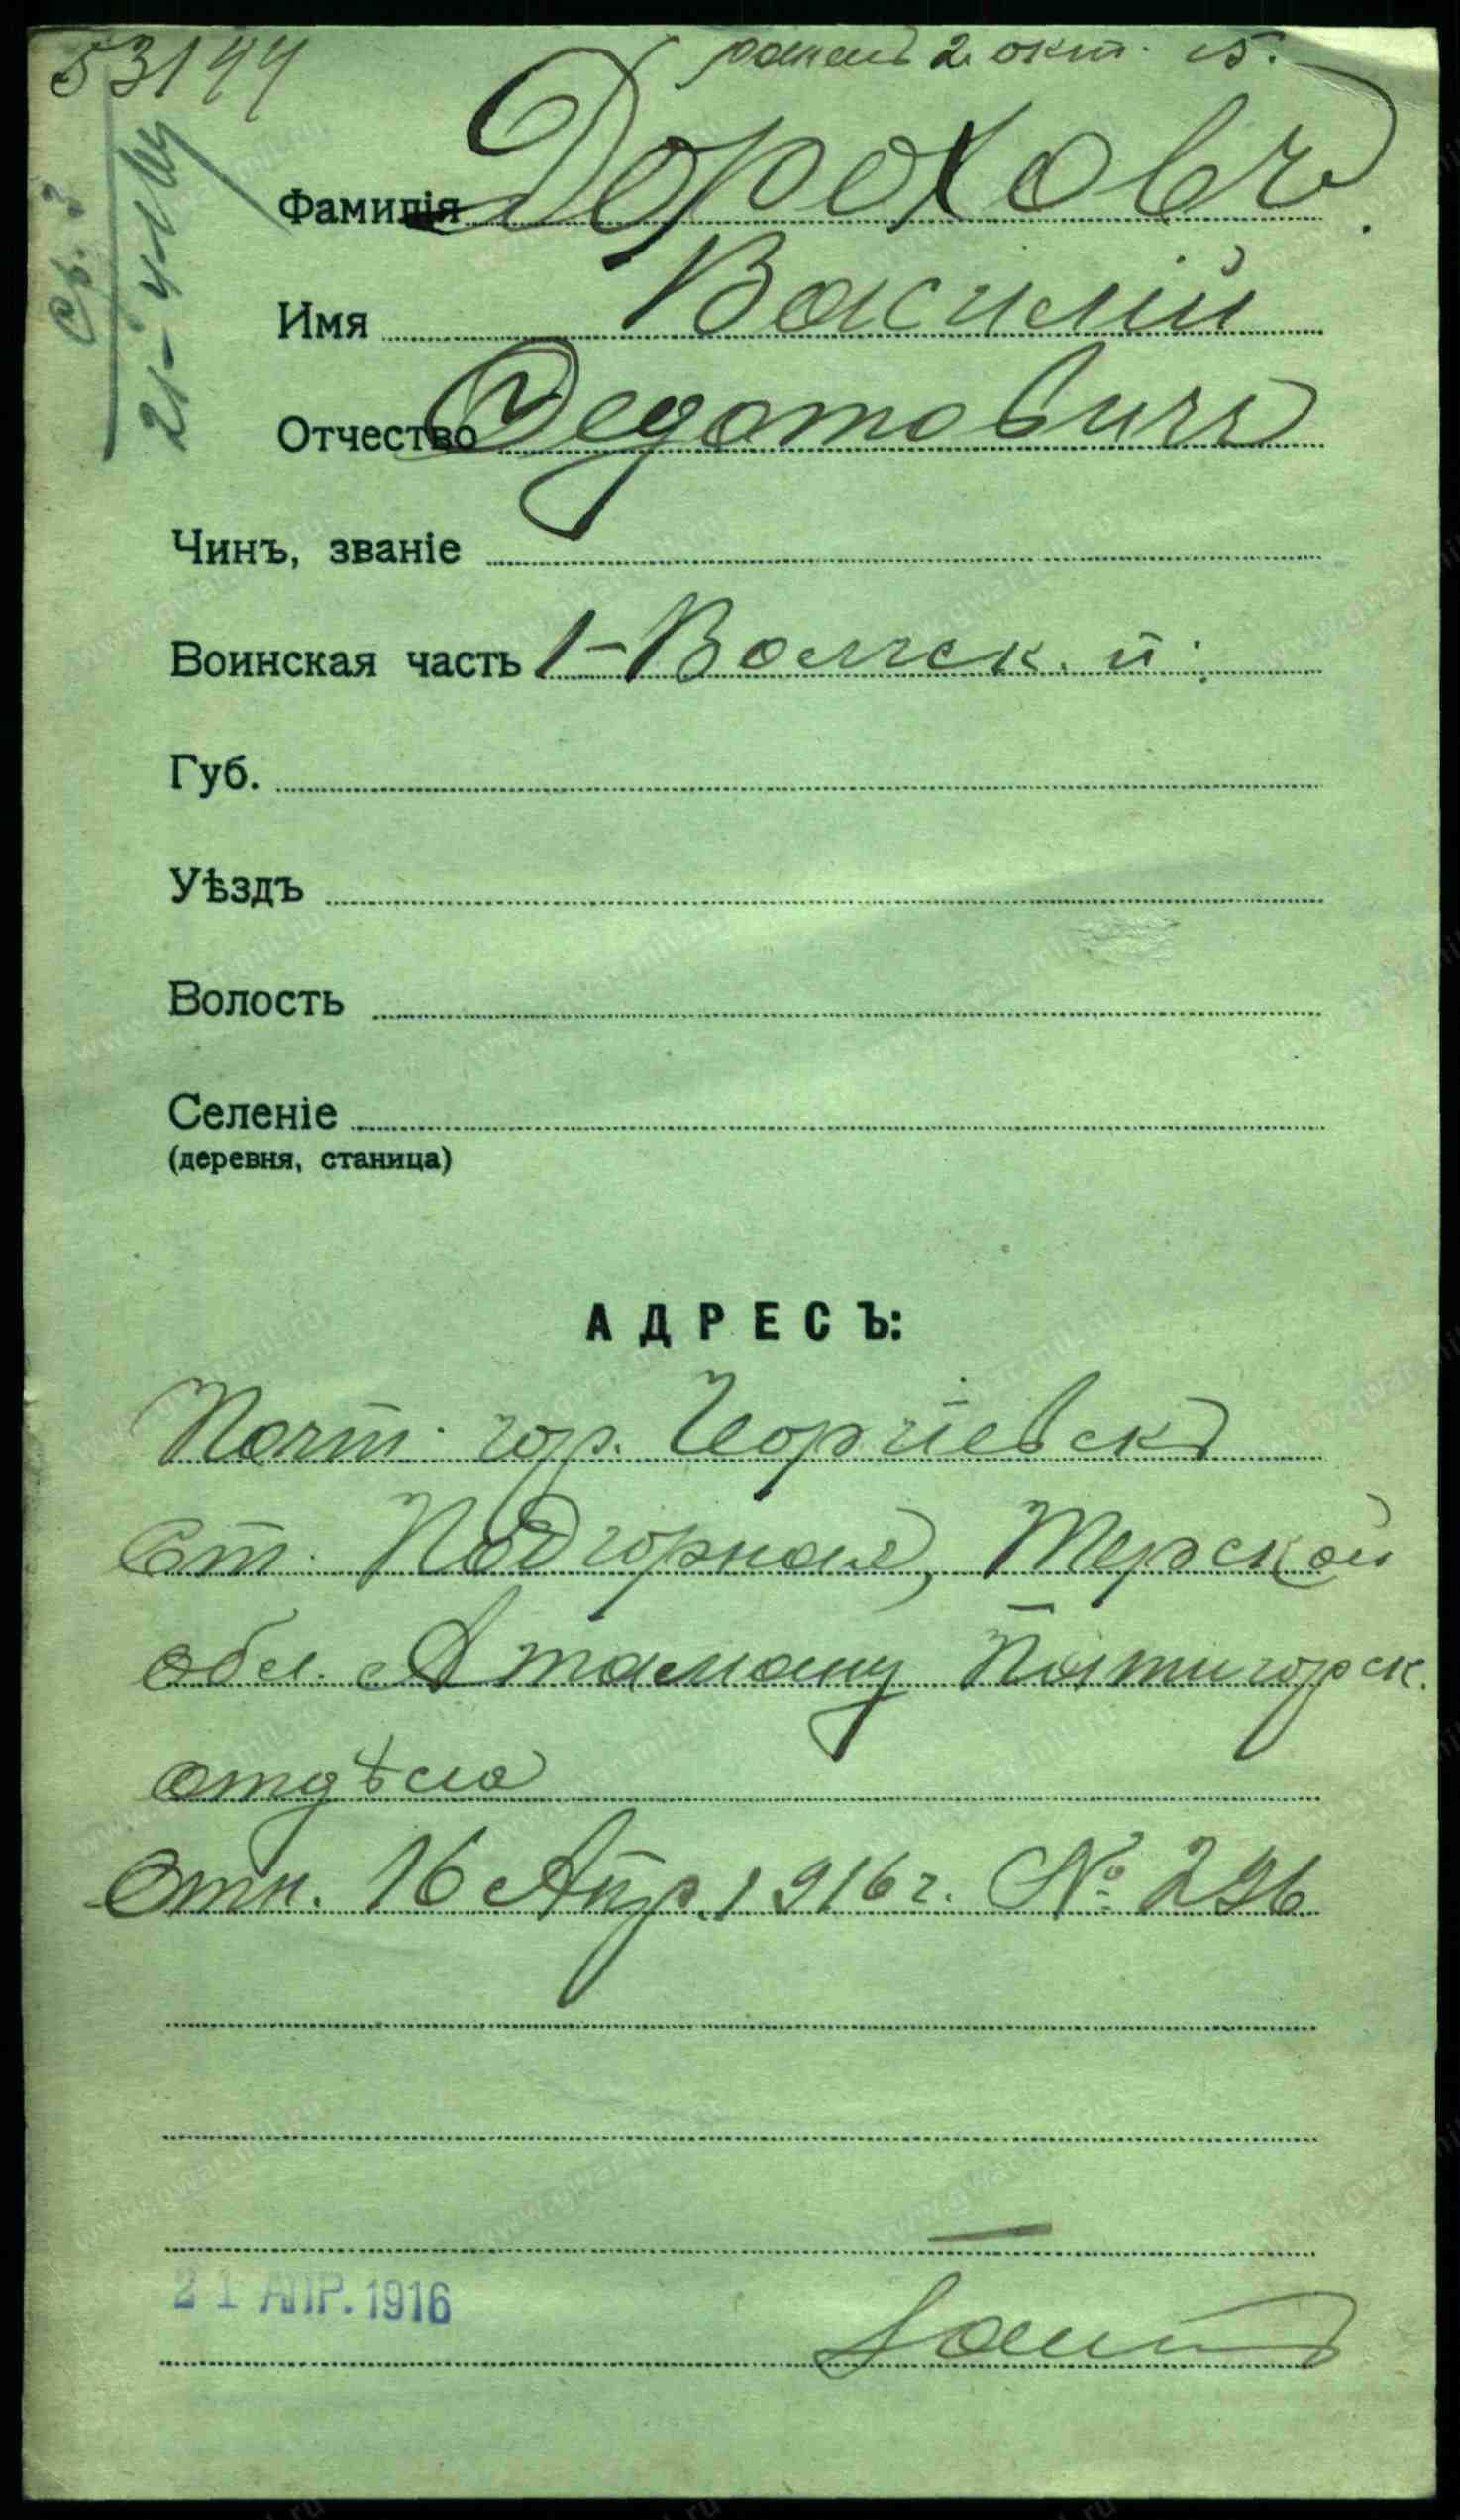 53144
раненъ 2 окт. 15.
Фамилія Дороховъ
Имя Василій
Отчество Федотовичъ
Чинъ, званіе
Воинская часть 1-Волгск. п.
Губ.
Уѣздъ
Волость
Селеніе
(деревня, станица)
АДРЕСЪ:
Почт. гор. Георгіевскъ
Ст. Подгорная, Терской
обл. Атаману Пятигорск.
отдѣла
Отн. 16 Апр. 1916 г. № 296
21 АПР. 1916